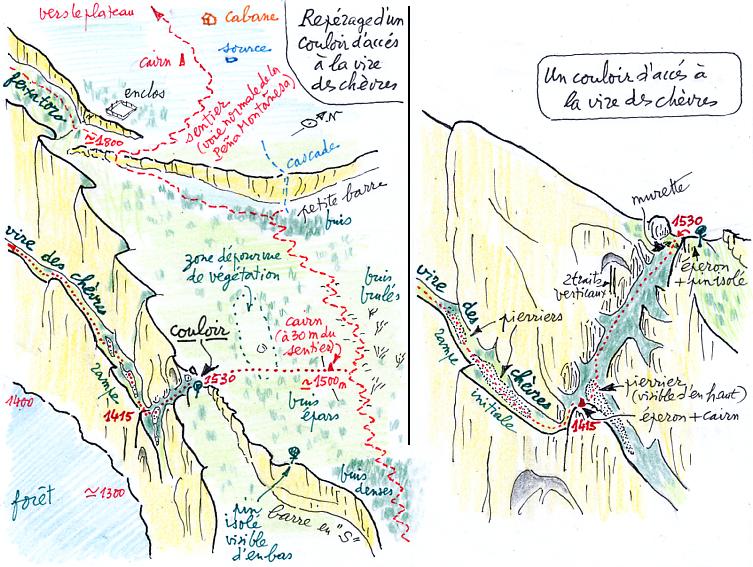 vers le plateau
cabane
source
cairn
Repérage d'un
couloir d'accés
à la vire
des chèvres
ferratora
enclos
sentier
(voie normale de la
Peña Montañesa)
N
≃1800
cascade
petite barre
buis
zone dépourvue
de végétation
buis
brulés
vire des chèvres
couloir
cairn
(à 30 m du
sentier)
1530
≃1500m
rampe
1415
buis
épars
1400
forêt
≃1300
buis
denses
pin
isolé
visible
d'en bas
barre en "S"
Un couloir d'accés à
la vire des chèvres
murette
1530
éperon
+ pin isolé
2 traits
verticaux
vire des chèvres
pierriers
rampe
initiale
pierrier
(visible d'en haut)
1415
éperon + cairn